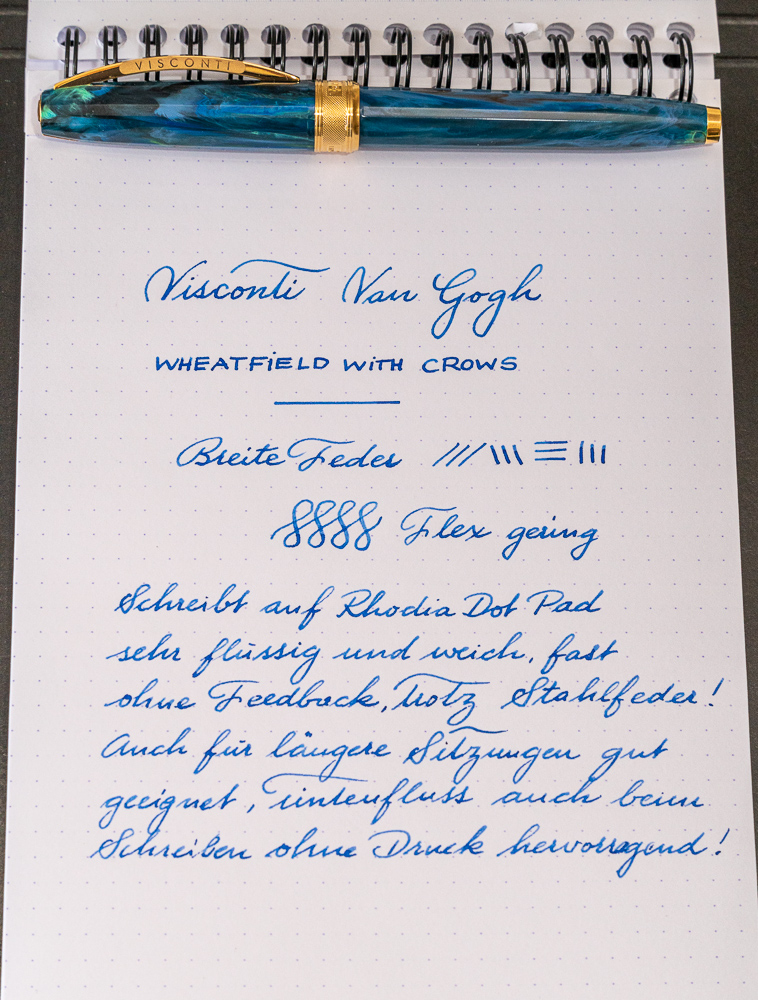 VISCONTI
Visconti Van Gogh
WHEATFIELD WITH CROWS
Breite Feder
Flex gering
Schreibt auf Rhodia Dot Pad
sehr flüssig und weich, fast
ohne Feedback, trotz Stahlfeder!
Auch für längere Sitzungen gut
geeignet, Tintenfluss auch beim
Schreiben ohne Druck hervorragend!